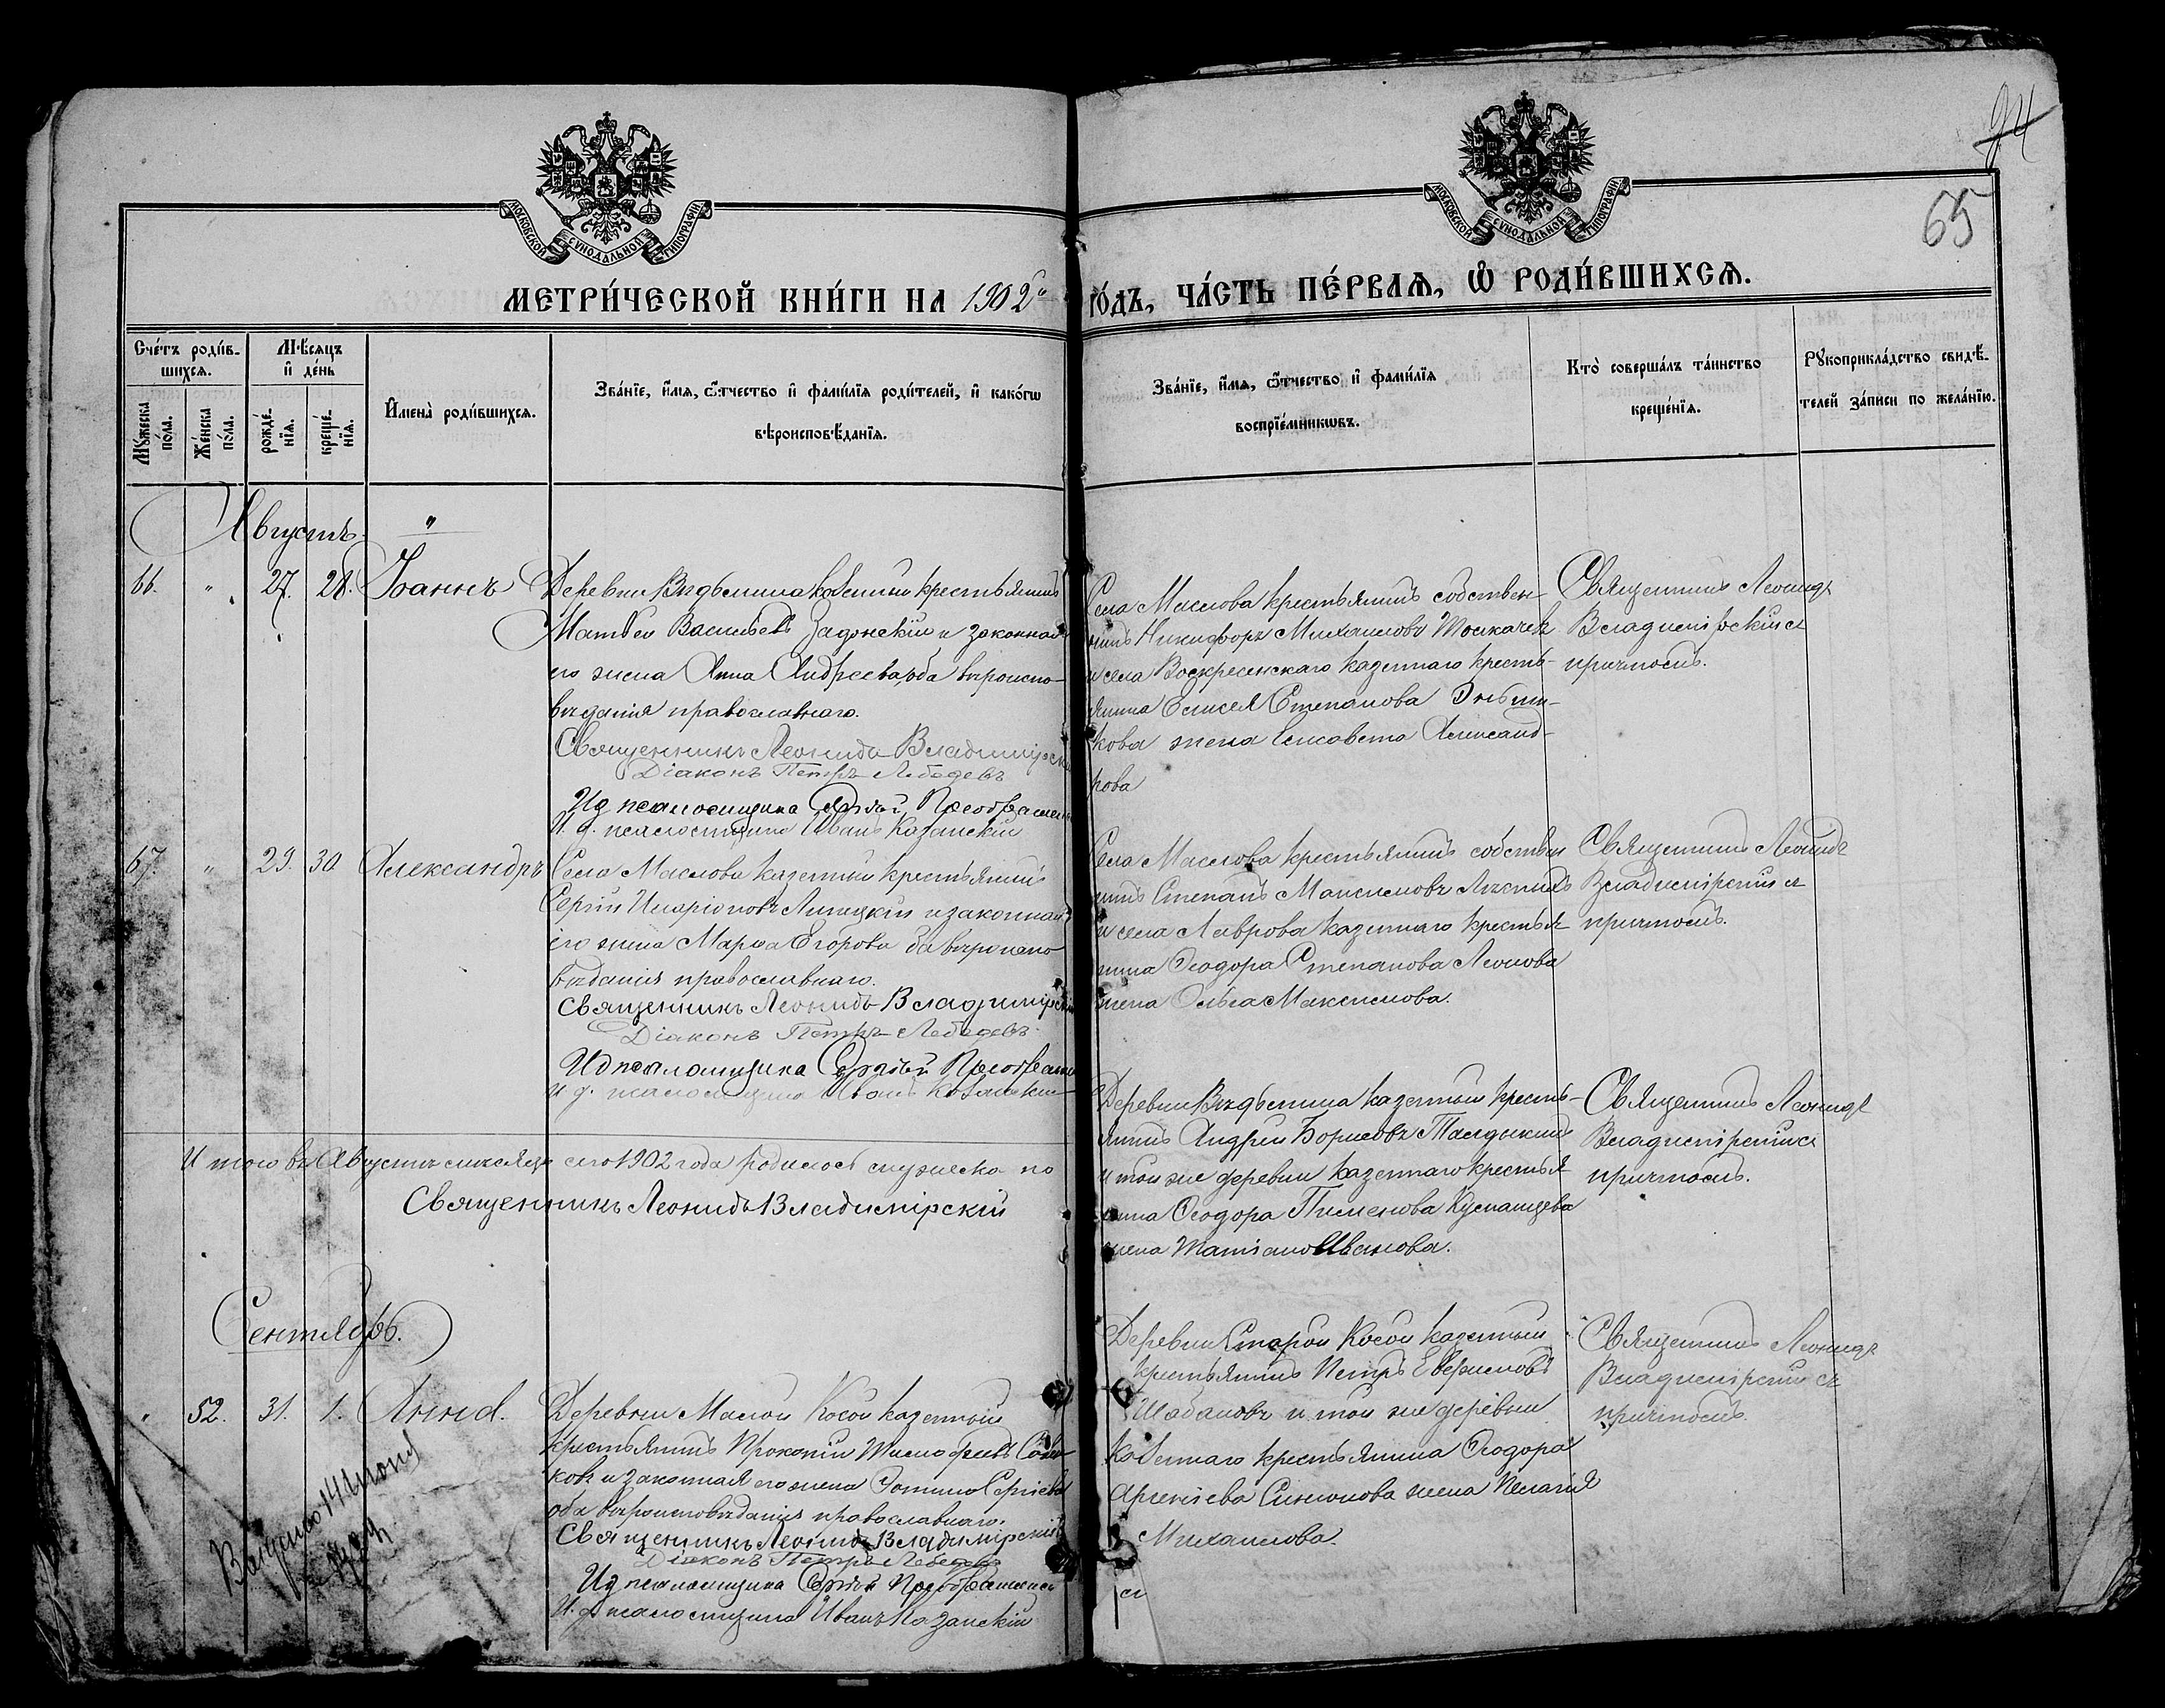 94
65
МОСКОВСКОЙ СѴНОДАЛЬНОЙ ТИПОГРАФІИ
МОСКОВСКОЙ СѴНОДАЛЬНОЙ ТИПОГРАФІИ
МЕТРИ́ЧЕСКОЙ КНИ́ГИ НА 1902 ГО́ДЪ, ЧА́СТЬ ПЕ́РВАѦ, Ѿ РОДИ́ВШИХСѦ.
Сче́тъ роди́в-
шихсѧ.
Мꙋ́жеска
по́ла.
Же́нска
по́ла.
Мѣ́сѧцъ
и҆ де́нь
рожде́-
нїѧ.
креще́-
нїѧ.
И҆мена̀ роди́вшихсѧ.
Зва́нїе, и҆́мѧ, ѻ҆́тчество и҆ фами́лїѧ роди́телей, и҆ како́гѡ
вѣроисповѣ́данїѧ.
Зва́нїе, и҆́мѧ, ѻ҆́тчество и҆ фами́лїѧ
воспрїе́мникѡвъ.
Кто̀ соверша́лъ та́инство
креще́нїѧ.
Рꙋкоприкла́дство свидѣ́-
телей за́писи по жела́нїю.
Августъ.
66. " 27. 28. Іоаннъ
Деревни казенный крестьянинъ
Матѳей Васильевъ Задонскій и законная
его жена Анна Андреева, оба вѣроиспо-
вѣданія православнаго.
Священникъ Леонидъ Владимірскій
Діаконъ Петръ Лебедевъ
И д псаломщика Сергѣй
И. д. псаломщика Иванъ Казанскій
Села Маслова крестьянинъ собствен-
никъ Никифоръ Михаиловъ Толкачевъ
и села Воскресенскаго казеннаго кресть-
янина Елисея Степанова
жена Елисавета Александ-
рова
Священникъ Леонидъ
Владимірскій съ
причтомъ.
67. " 29. 30. Александръ
Села Маслова казенный крестьянинъ
Сергій Иларіоновъ Липецкій и законная
его жена Марѳа Егорова оба вѣроиспо
вѣданія православнаго.
Священникъ Леонидъ Владимірскій
Діаконъ Петръ Лебедевъ
И д псаломщика Сергѣй
И д. псаломщика Иванъ Казанскій
Села Маслова крестьянинъ собствен
никъ Степанъ Максимовъ
и села Лаврова казеннаго крестья
нина Ѳеодора Степанова Леонова
жена Ольга Максимова.
Священникъ Леонидъ
Владимірскій съ
причтомъ.
Деревни казенный кресть-
янинъ Андрей Борисовъ Талдыкинъ
и той же деревни казеннаго крестья
нина Ѳеодора Пименова
жена Татіана Иванова.
Священникъ Леонидъ
Владимірскій съ
причтомъ.
Итого въ Августѣ мѣсяцѣ сего 1902 года родилось мужеска по
Священникъ Леонидъ Владимірскій
Сентябрь.
" 52. 31. 1. Анна.
Деревни Малой Косой казенный
крестьянинъ Прокопій Тимофеевъ
ковъ и законная его жена Сергіева
оба вѣроисповѣданія православнаго.
Священникъ Леонидъ Владимірскій
Діаконъ Петръ Лебедевъ
И д псаломщика Сергѣй
И. д псаломщика Иванъ Казанскій
Деревни Старой Косой казенный
крестьянинъ Петръ
Шабановъ и той же деревни
казеннаго крестьянина Ѳеодора
Арсеніева жена Пелагія
Михаилова.
Священникъ Леонидъ
Владимірскій съ
причтомъ.